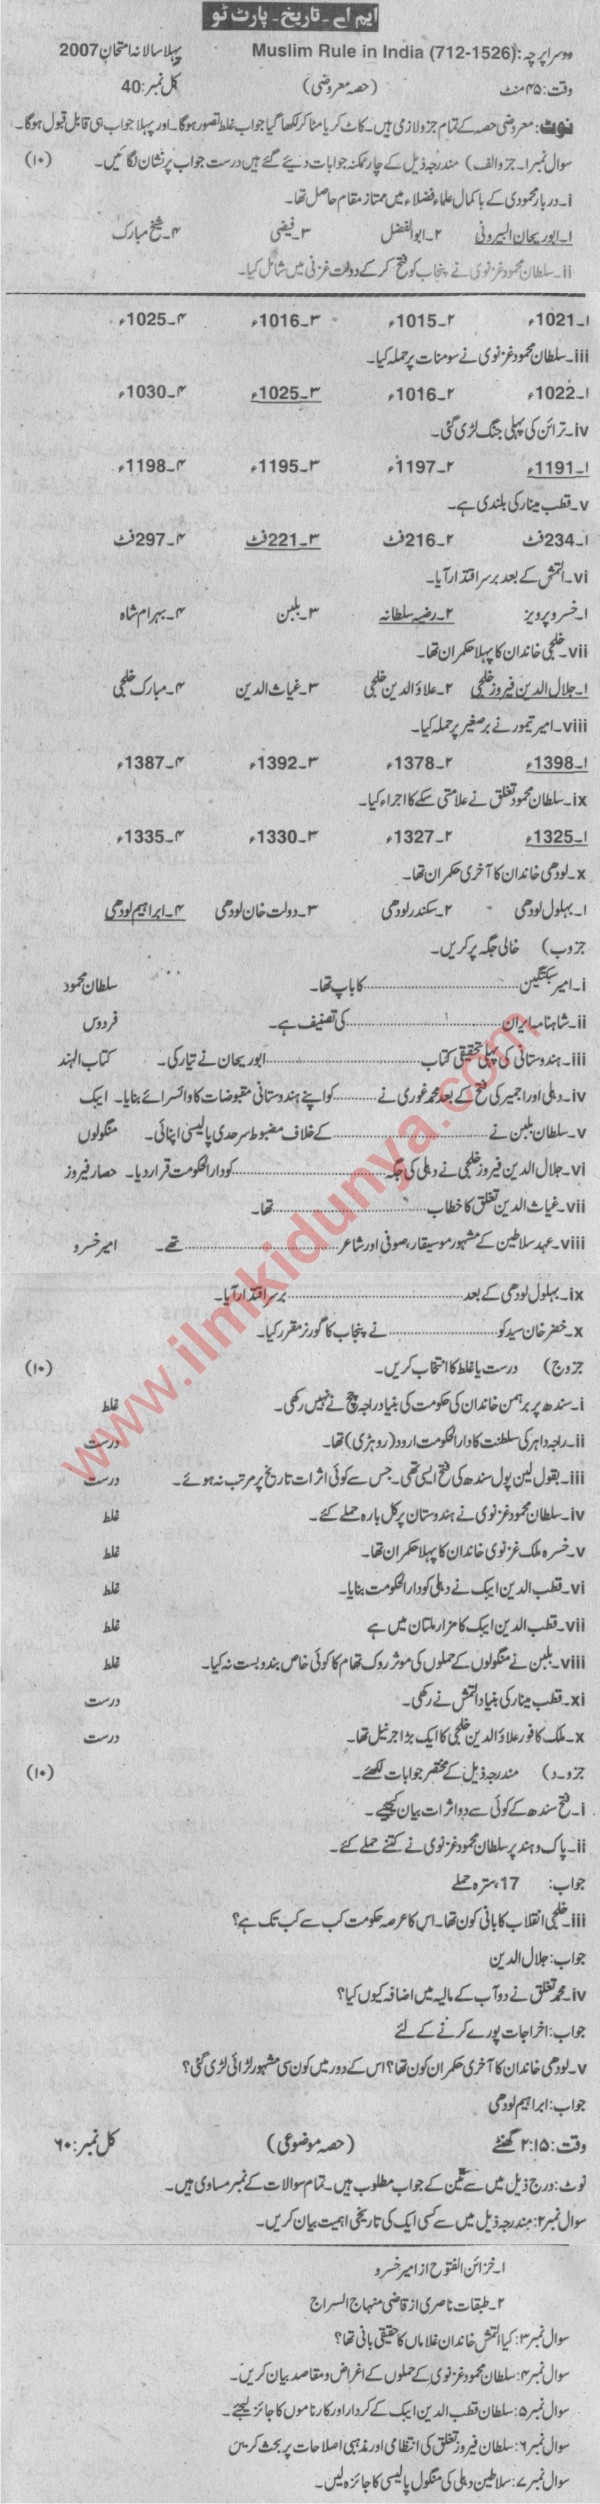 ایم اے۔ تاریخ۔ پارٹ ٹو
دوسرا پرچہ: Muslim Rule in India (712-1526) پہلا سالانہ امتحان 2007
وقت: ۴۵ منٹ (حصہ معروضی) کل نمبر: 40
نوٹ: معروضی حصہ کے تمام جزو لازمی ہیں۔ کاٹ کر یا مٹا کر لکھا گیا جواب غلط تصور ہوگا۔ اور پہلا جواب ہی قابل قبول ہوگا۔
سوال نمبر۱۔ جزو الف) مندرجہ ذیل کے چار ممکنہ جوابات دیئے گئے ہیں درست جواب پر نشان لگائیں۔ (۱۰)
i۔ دربار محمودی کے باکمال علماء فضلاء میں ممتاز مقام حاصل تھا۔
۱۔ ابوریحان البیرونی ۲۔ ابوالفضل ۳۔ فیضی ۴۔ شیخ مبارک
ii۔ سلطان محمود غزنوی نے پنجاب کو فتح کر کے دولت غزنی میں شامل کیا۔
۱۔1021ء ۲۔1015ء ۳۔1016ء ۴۔1025ء
iii۔ سلطان محمود غزنوی نے سومنات پر حملہ کیا۔
۱۔1022ء ۲۔1016ء ۳۔1025ء ۴۔1030ء
iv۔ ترائن کی پہلی جنگ لڑی گئی۔
۱۔1191ء ۲۔1197ء ۳۔1195ء ۴۔1198ء
v۔ قطب مینار کی بلندی ہے۔
۱۔234فٹ ۲۔216فٹ ۳۔221فٹ ۴۔297فٹ
vi۔ التمش کے بعد برسر اقتدار آیا۔
۱۔ خسرو پرویز ۲۔ رضیہ سلطانہ ۳۔ بلبن ۴۔ بہرام شاہ
vii۔ خلجی خاندان کا پہلا حکمران تھا۔
۱۔ جلال الدین فیروز خلجی ۲۔ علاؤالدین خلجی ۳۔ غیاث الدین ۴۔ مبارک خلجی
viii۔ امیر تیمور نے برصغیر پر حملہ کیا۔
۱۔1398ء ۲۔1378ء ۳۔1392ء ۴۔1387ء
ix۔ سلطان محمود تغلق نے علامتی سکے کا اجراء کیا۔
۱۔1325ء ۲۔1327ء ۳۔1330ء ۴۔1335ء
x۔ لودھی خاندان کا آخری حکمران تھا۔
۱۔ بہلول لودھی ۲۔ سکندر لودھی ۳۔ دولت خان لودھی ۴۔ ابراہیم لودھی
جزوب) خالی جگہ پر کریں۔
i۔ امیر سبکتگین.............کا باپ تھا۔ سلطان محمود
ii۔ شاہنامہ ایران.............کی تصنیف ہے۔ فردوس
iii۔ ہندوستانی کی پہلی تحقیقی کتاب.............ابوریحان نے تیار کی۔ کتاب الہند
iv۔ دہلی اور اجمیر کی فتح کے بعد محمد غوری نے.............کو اپنے ہندوستانی مقبوضات کا وائسرائے بنایا۔ ایبک
v۔ سلطان بلبن نے.............کے خلاف مضبوط سرحدی پالیسی اپنائی۔ منگولوں
vi۔ جلال الدین فیروز خلجی نے دہلی کی جگہ.............کو دارالحکومت قرار دیا۔ حصار فیروز
vii۔ غیاث الدین تغلق کا خطاب.............تھا۔
viii۔ عہد سلاطین کے مشہور موسیقار، صوفی اور شاعر.............تھے۔ امیر خسرو
ix۔ بہلول لودھی کے بعد.............برسر اقتدار آیا۔
x۔ خضر خان سید کو.............نے پنجاب کا گورنر مقرر کیا۔
جزوج) درست یا غلط کا انتخاب کریں۔ (۱۰)
i۔ سندھ پر برہمن خاندان کی حکومت کی بنیاد راجہ چچ نے نہیں رکھی۔ غلط
ii۔ راجہ داہر کی سلطنت کا دارالحکومت ارور (روہڑی) تھا۔ درست
iii۔ بقول لین پول سندھ کی فتح ایسی تھی۔ جس سے کوئی اثرات تاریخ پر مرتب نہ ہوئے۔ درست
iv۔ سلطان محمود غزنوی نے ہندوستان پر کل بارہ حملے کئے۔ غلط
v۔ خسرہ ملک غزنوی خاندان کا پہلا حکمران تھا۔ غلط
vi۔ قطب الدین ایبک نے دہلی کو دارالحکومت بنایا۔ غلط
vii۔ قطب الدین ایبک کا مزار ملتان میں ہے غلط
viii۔ بلبن نے منگولوں کے حملوں کی موثر روک تھام کا کوئی خاص بندوبست نہ کیا۔ غلط
xi۔ قطب مینار کی بنیاد التمش نے رکھی۔ درست
x۔ ملک کافور علاؤالدین خلجی کا ایک بڑا جرنیل تھا۔ درست
جزو۔د) مندرجہ ذیل کے مختصر جوابات لکھئے۔ (۱۰)
i۔ فتح سندھ کے کوئی سے دو اثرات بیان کیجیے۔
ii۔ پاک و ہند پر سلطان محمود غزنوی نے کتنے حملے کئے۔
جواب: 17، سترہ حملے
iii۔ خلجی انقلاب کا بانی کون تھا۔ اس کا عرصہ حکومت کب سے کب تک ہے؟
جواب: جلال الدین
iv۔ محمد تغلق نے دوآب کے مالیہ میں اضافہ کیوں کیا؟
جواب: اخراجات پورے کرنے کے لئے
v۔ لودھی خاندان کا آخری حکمران کون تھا؟ اس کے دور میں کون سی مشہور لڑائی لڑی گئی؟
جواب: ابراہیم لودھی
وقت: ۲:۱۵ گھنٹے (حصہ موضوعی) کل نمبر: ۶۰
نوٹ: درج ذیل میں سے تین کے جواب مطلوب ہیں۔ تمام سوالات کے نمبر مساوی ہیں۔
سوال نمبر۲: مندرجہ ذیل میں سے کسی ایک کی تاریخی اہمیت بیان کریں۔
۱۔ خزائن الفتوح از امیر خسرو
۲۔ طبقات ناصری از قاضی منہاج السراج
سوال نمبر۳: کیا التمش خاندان غلاماں کا حقیقی بانی تھا؟
سوال نمبر۴: سلطان محمود غزنوی کے حملوں کے اغراض و مقاصد بیان کریں۔
سوال نمبر۵: سلطان قطب الدین ایبک کے کردار اور کارناموں کا جائزہ لیجئے۔
سوال نمبر۶: سلطان فیروز تغلق کی انتظامی اور مذہبی اصلاحات پر بحث کریں
سوال نمبر۷: سلاطین دہلی کی منگول پالیسی کا جائزہ لیں۔
www.ilmkidunya.com